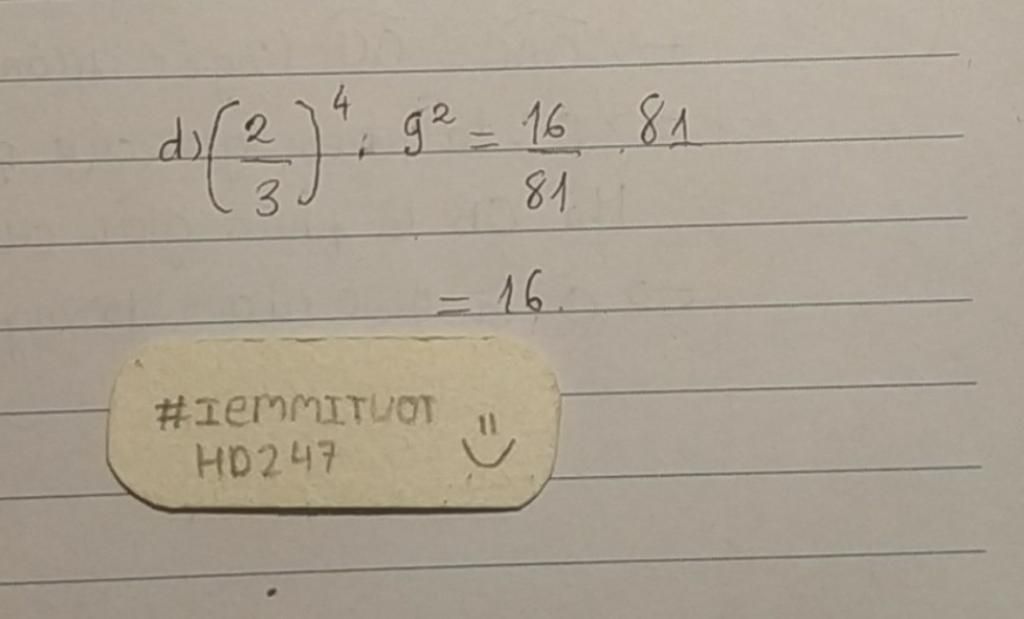 d) (2/3)^4 . 9^2 = 16/81 . 81
= 16.
#IEMMITUOT
HD247